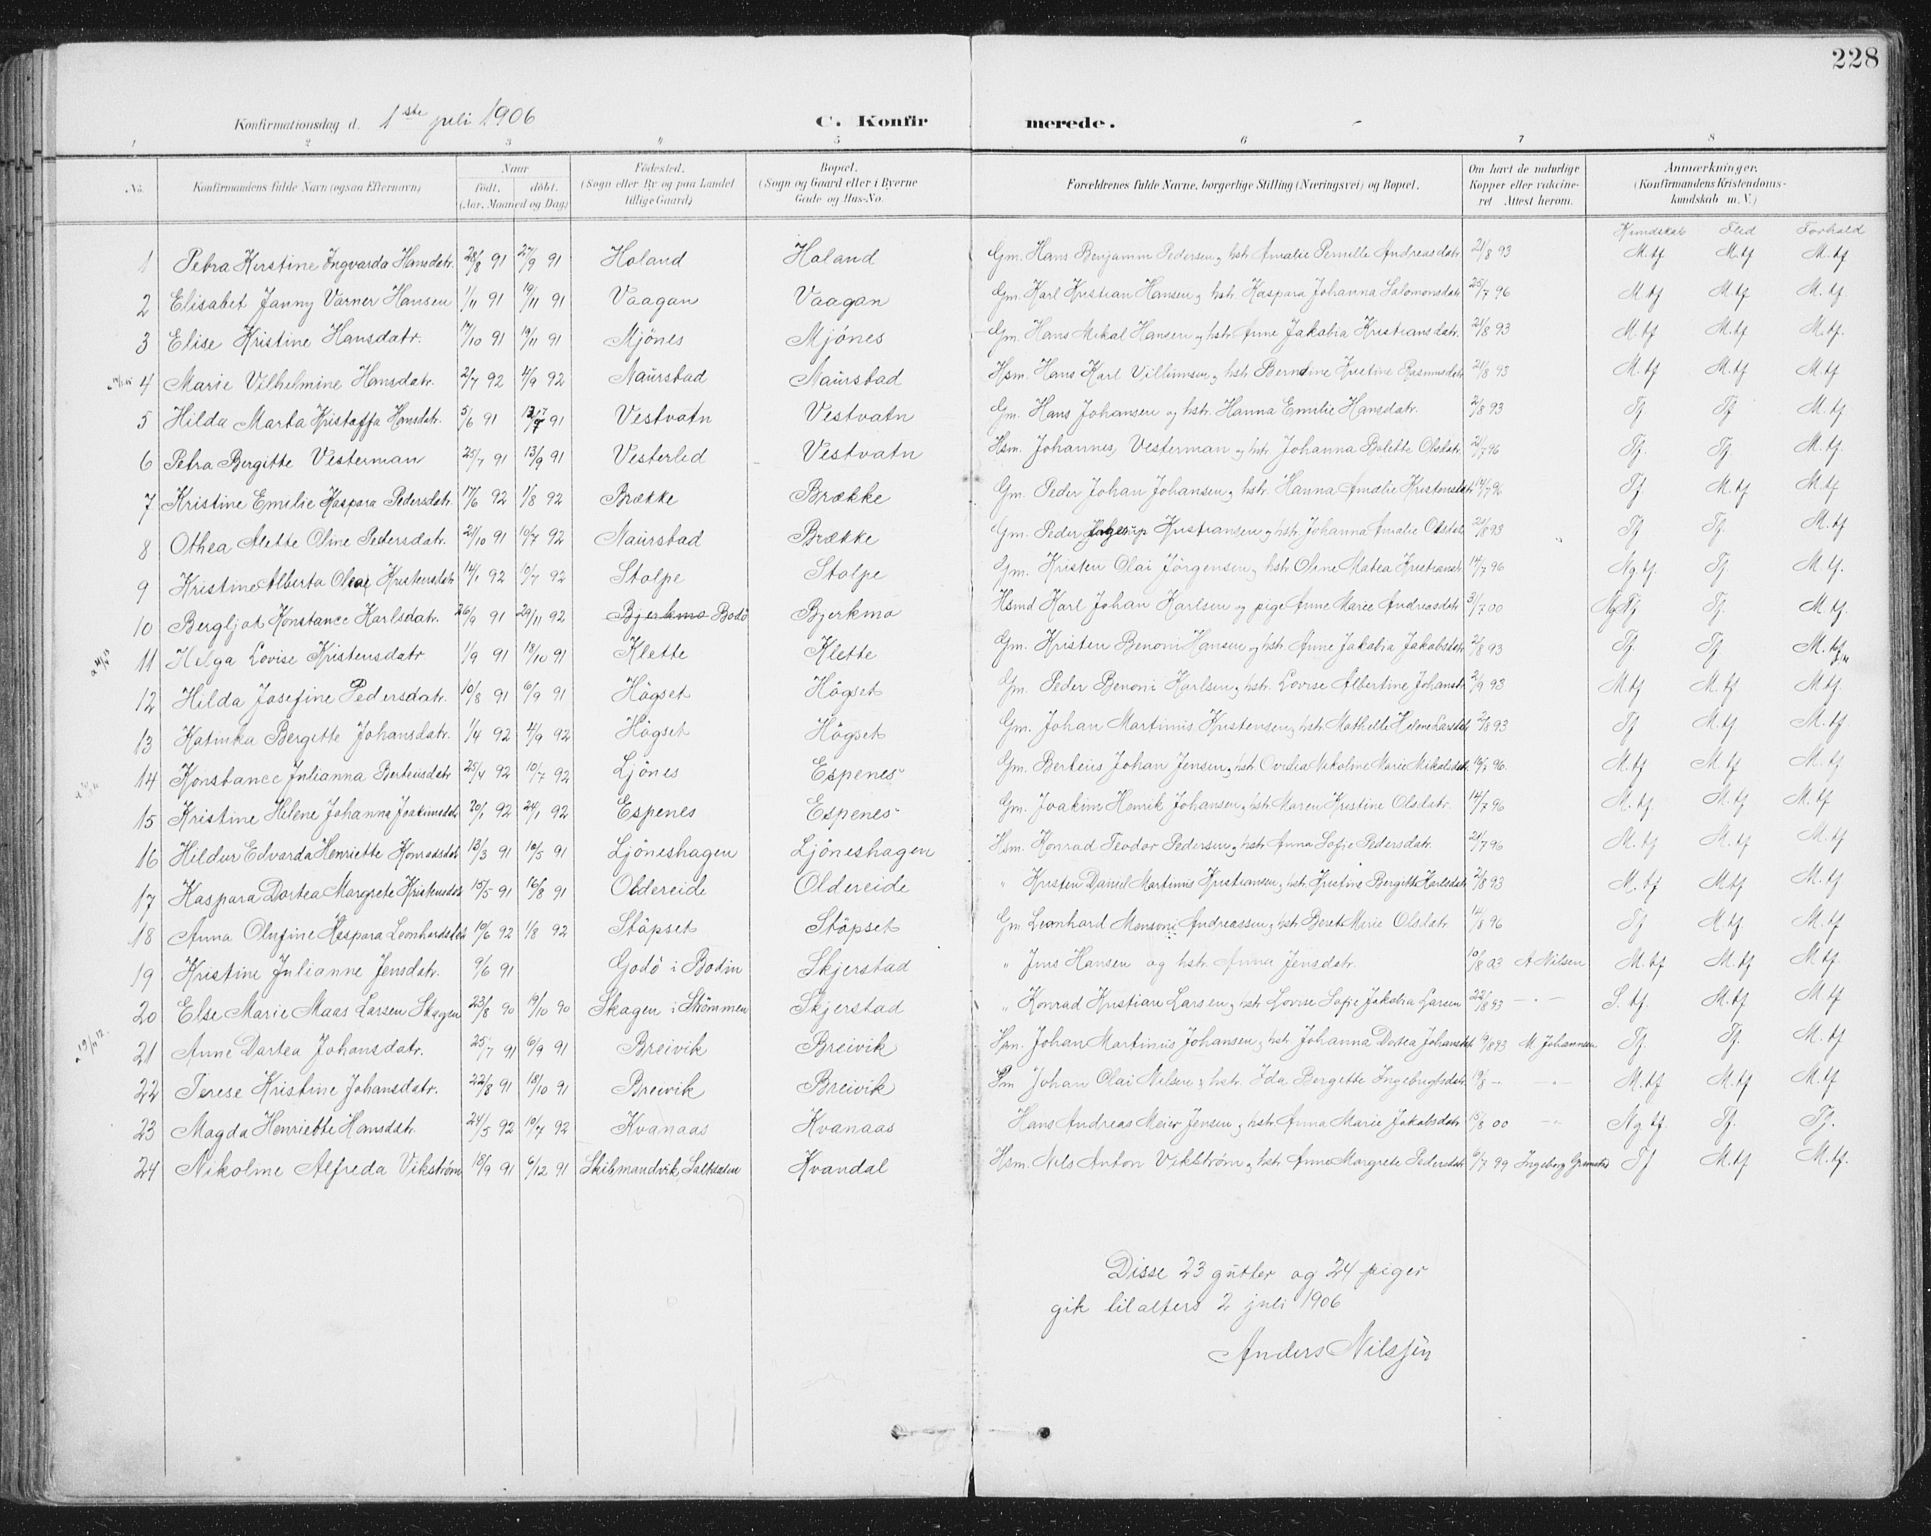 228
Konfirmationsdag d. 1ste juli 1906 C. Konfirmerede.
1 2 3 4 5 6 7 8
No. Konfirmandens fulde Navn (ogsaa Efternavn) Naar født. døbt. (Aar, Maaned og Dag) Födested. (Sogn eller By og paa Landet tillige Gaard) Bopæl. (Sogn og Gaard eller i Byerne Gade og Hus-No. Forældrenes fulde Navne, borgerlige Stilling (Næringsvei) og Bopæl. Om havt de naturlige Kopper eller vakcineret Attest herom. Anmærkninger. (Konfirmandens Kristendomskundskab m. V.)
Kundskab Flid Forhold
1 Petra Kirstine Ingvarda Hansdatr. 28/8 91 27/9 91 Holand Holand Gm. Hans Benjamin Pedersen og hstr. Amalie Pernille Andreasdatr 21/8 93 M.tf M.tf M.tf
2 Elisabet Janny Varner Hansen 1/11 91 19/11 91 Vaagan Vaagan Gm. Karl Kristian Hansen og hstr. Kaspara Johanna Salomonsdatr 25/7 96 M.tf M.tf M.tf
3 Elise Kristine Hansdatr. 17/10 91 19/11 91 Mjönes Mjönes Gm. Hans Mikal Hansen og hstr. Anne Jakobia Kristiansdatr 21/8 93 M.tf M.tf M.tf.
4 Marie Vilhelmine Hansdatr. 2/7 92 4/9 92 Naurstad Naurstad Hsm. Hans Karl Villumsen og hstr Berntine Kristine Rasmusdatr 21/8 93 M.tf M.tf M.tf
5 Hilda Marta Kristoffa Hansdatr. 5/6 91 91 Vestvatn Vestvatn Gm. Hans Johansen og hstr. Hanna Emilie Hansdatr. 2/8 93 Tf Tf M.tf
6 Petra Bergitte Vesterman 25/7 91 13/9 91 Vesterled Vestvatn Hsm. Johannes Vesterman og hstr Johanna Bolette Olsdatr. 21/7 96 Tf. Tf. M.tf.
7 Kristine Emilie Kaspara Pedersdatr. 17/6 92 1/8 92 Brække Brække Gm. Peder Johan Johansen og hstr. Hanna Amalie Kristensdatr 14/7 96 Tf M.tf M.tf
8 Othea Alette Oline Pedersdatr. 21/10 91 10/7 92 Naurstad Brække Gm. Peder Kristiansen og hstr Johanna Amalie Olsdatr 21/8 93 Tf Tf. M.tf
9 Kristine Alberta Oleai Kristensdatr 14/1 92 10/7 92 Stolpe Stolpe Gm. Kristen Olai Jörgensen og hstr. Oline Matea Kristiansdtr 14/7 96 Ng tf. Tf. M.tf.
10 Bergljot Konstance Karlsdatr. 26/9 91 29/11 92 Bjerkmo Bodö Bjerkmo Hsmd Karl Johan Karlsen og pige Anne Marie Andreasdatr 3/7 00 Ng Tf Tf. M.tf
11 Helga Lovise Kristensdatr 1/9 91 18/10 91 Klette Klette Gm. Kristen Benoni Hansen og hstr. Anne Jakobia Jakobsdatr 2/8 93 Tf. Tf M.tf
12 Hilda Josefine Pedersdatr. 10/8 91 6/9 91 Högset Högset Gm. Peder Benoni Karlsen og hstr. Lovise Albertine Johansdtr 2/9 93 M.tf M.tf M.tf.
13 Katinka Bergitte Johansdatr. 1/4 92 4/9 92 Högset Högset Gm. Johan Martinus Kristensen og hstr. Mathilde Helene Larsdat 2/8 93 Tf M.tf M.tf.
14 Konstance Julianna Berteusdatr 25/4 92 10/7 92 Ljönes Espenes Gm. Berteus Johan Jensen og hstr. Ovedia Nikoline Marie Mikalsdatr 16/7 96. M.tf M.tf M.tf
15 Kristine Helene Johanna Joakimsdatr 20/1 92 24/1 92 Espenes Espenes Gm. Joakim Henrik Johansen og hstr. Maren Kristine Olsdatr. 14/7 96 M.tf M.tf M.tf
16 Hildur Edvarda Henriette Konradsdatr 13/3 91 10/5 91 Ljöneshagen Ljöneshagen Hsm. Konrad Teodor Pedersen og hstr Anna Sofie Pedersdatr. 21/7 96 M.tf M.tf M.tf
17 Kaspara Dortea Margrete Kristensdatr 15/5 91 16/8 91 Oldereide Oldereide " Kristen Daniel Martinus Kristiansen og hstr. Kristine Bergitte Karlsdatr 2/8 93 M.tf M.tf M.tf
18 Anna Olufine Kaspara Leonhardsdtr 10/6 92 1/8 92 Störset Störset Gm Leonhard Monsoni Andreassen og hstr. Beret Marie Olsdatr 14/8 96 Tf M.tf. M.tf
19 Kristine Julianne Jensdatr. 9/6 91 Godö i Bodin Skjerstad " Jens Hansen og hstr. Anna Jensdatr. 10/8 03 A Nilsen M.tf M.tf M.tf
20 Else Marie Maas Larsen Skagen 23/8 90 19/10 90 Skagen i Strömmen Skjerstad " Konrad Kristian Larsen og hstr. Lovise Sofie Jakobia Larsen 22/8 93 -"- S.tf. M.tf M.tf
21 Anne Dortea Johansdatr. 25/7 91 6/9 91 Breivik Breivik Hsm. Johan Martinus Johansen og hstr. Johanna Dortea Johansdatr 9/8 93 M Johannsen Tf. Tf. M.tf
22 Terese Kristine Johansdatr. 22/8 91 18/10 91 Breivik Breivik Johan Olai Nilsen & hstr. Ida Bergette Ingebrigtsdatr 19/8 - -"- M.tf M.tf M.tf
23 Magda Henriette Hansdatr. 24/5 92 10/7 92 Kvanaas Kvanaas Hans Andreas Meier Jensen og hstr Anna Marie Jakobsdatr 15/8 00 -"- Ng tf. Tf. Tf.
24 Nikoline Alfreda Vikström 18/9 91 6/12 91 Skibmandvik, Saltdalen Kvandal Hsm. Nils Anton Vikström og hstr. Anne Margrete Pedersdatr 6/7 99 Ingeborg Tf M.tf M.tf.
Disse 23 gutter og 24 piger
gik til alters 2 juli 1906
Anders Nilssen